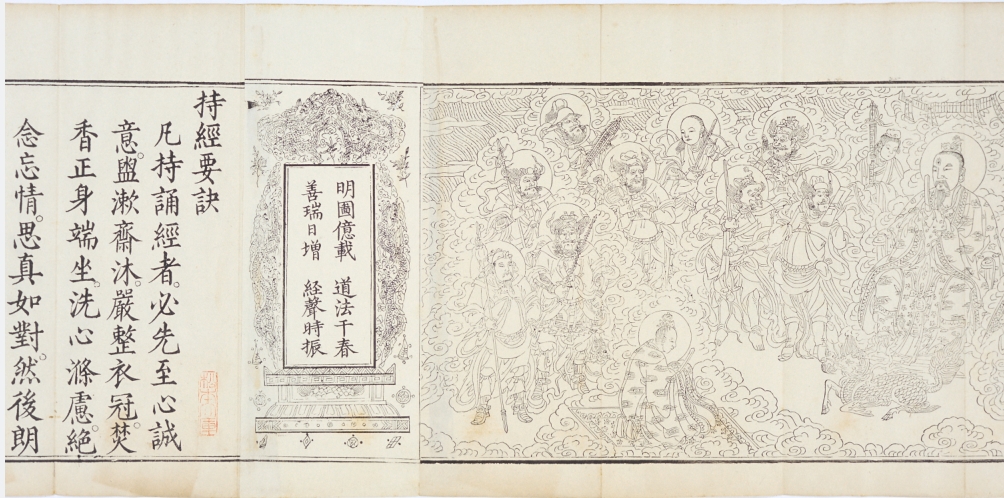 明圖億載 道法千春
善瑞日增 経聲時振
持經要訣
凡持誦經者。必先至心誠
意。盥漱齋沐。嚴整衣冠。焚
香正身端坐。洗心滌慮。絕
念忘情。思真如對。然後朗